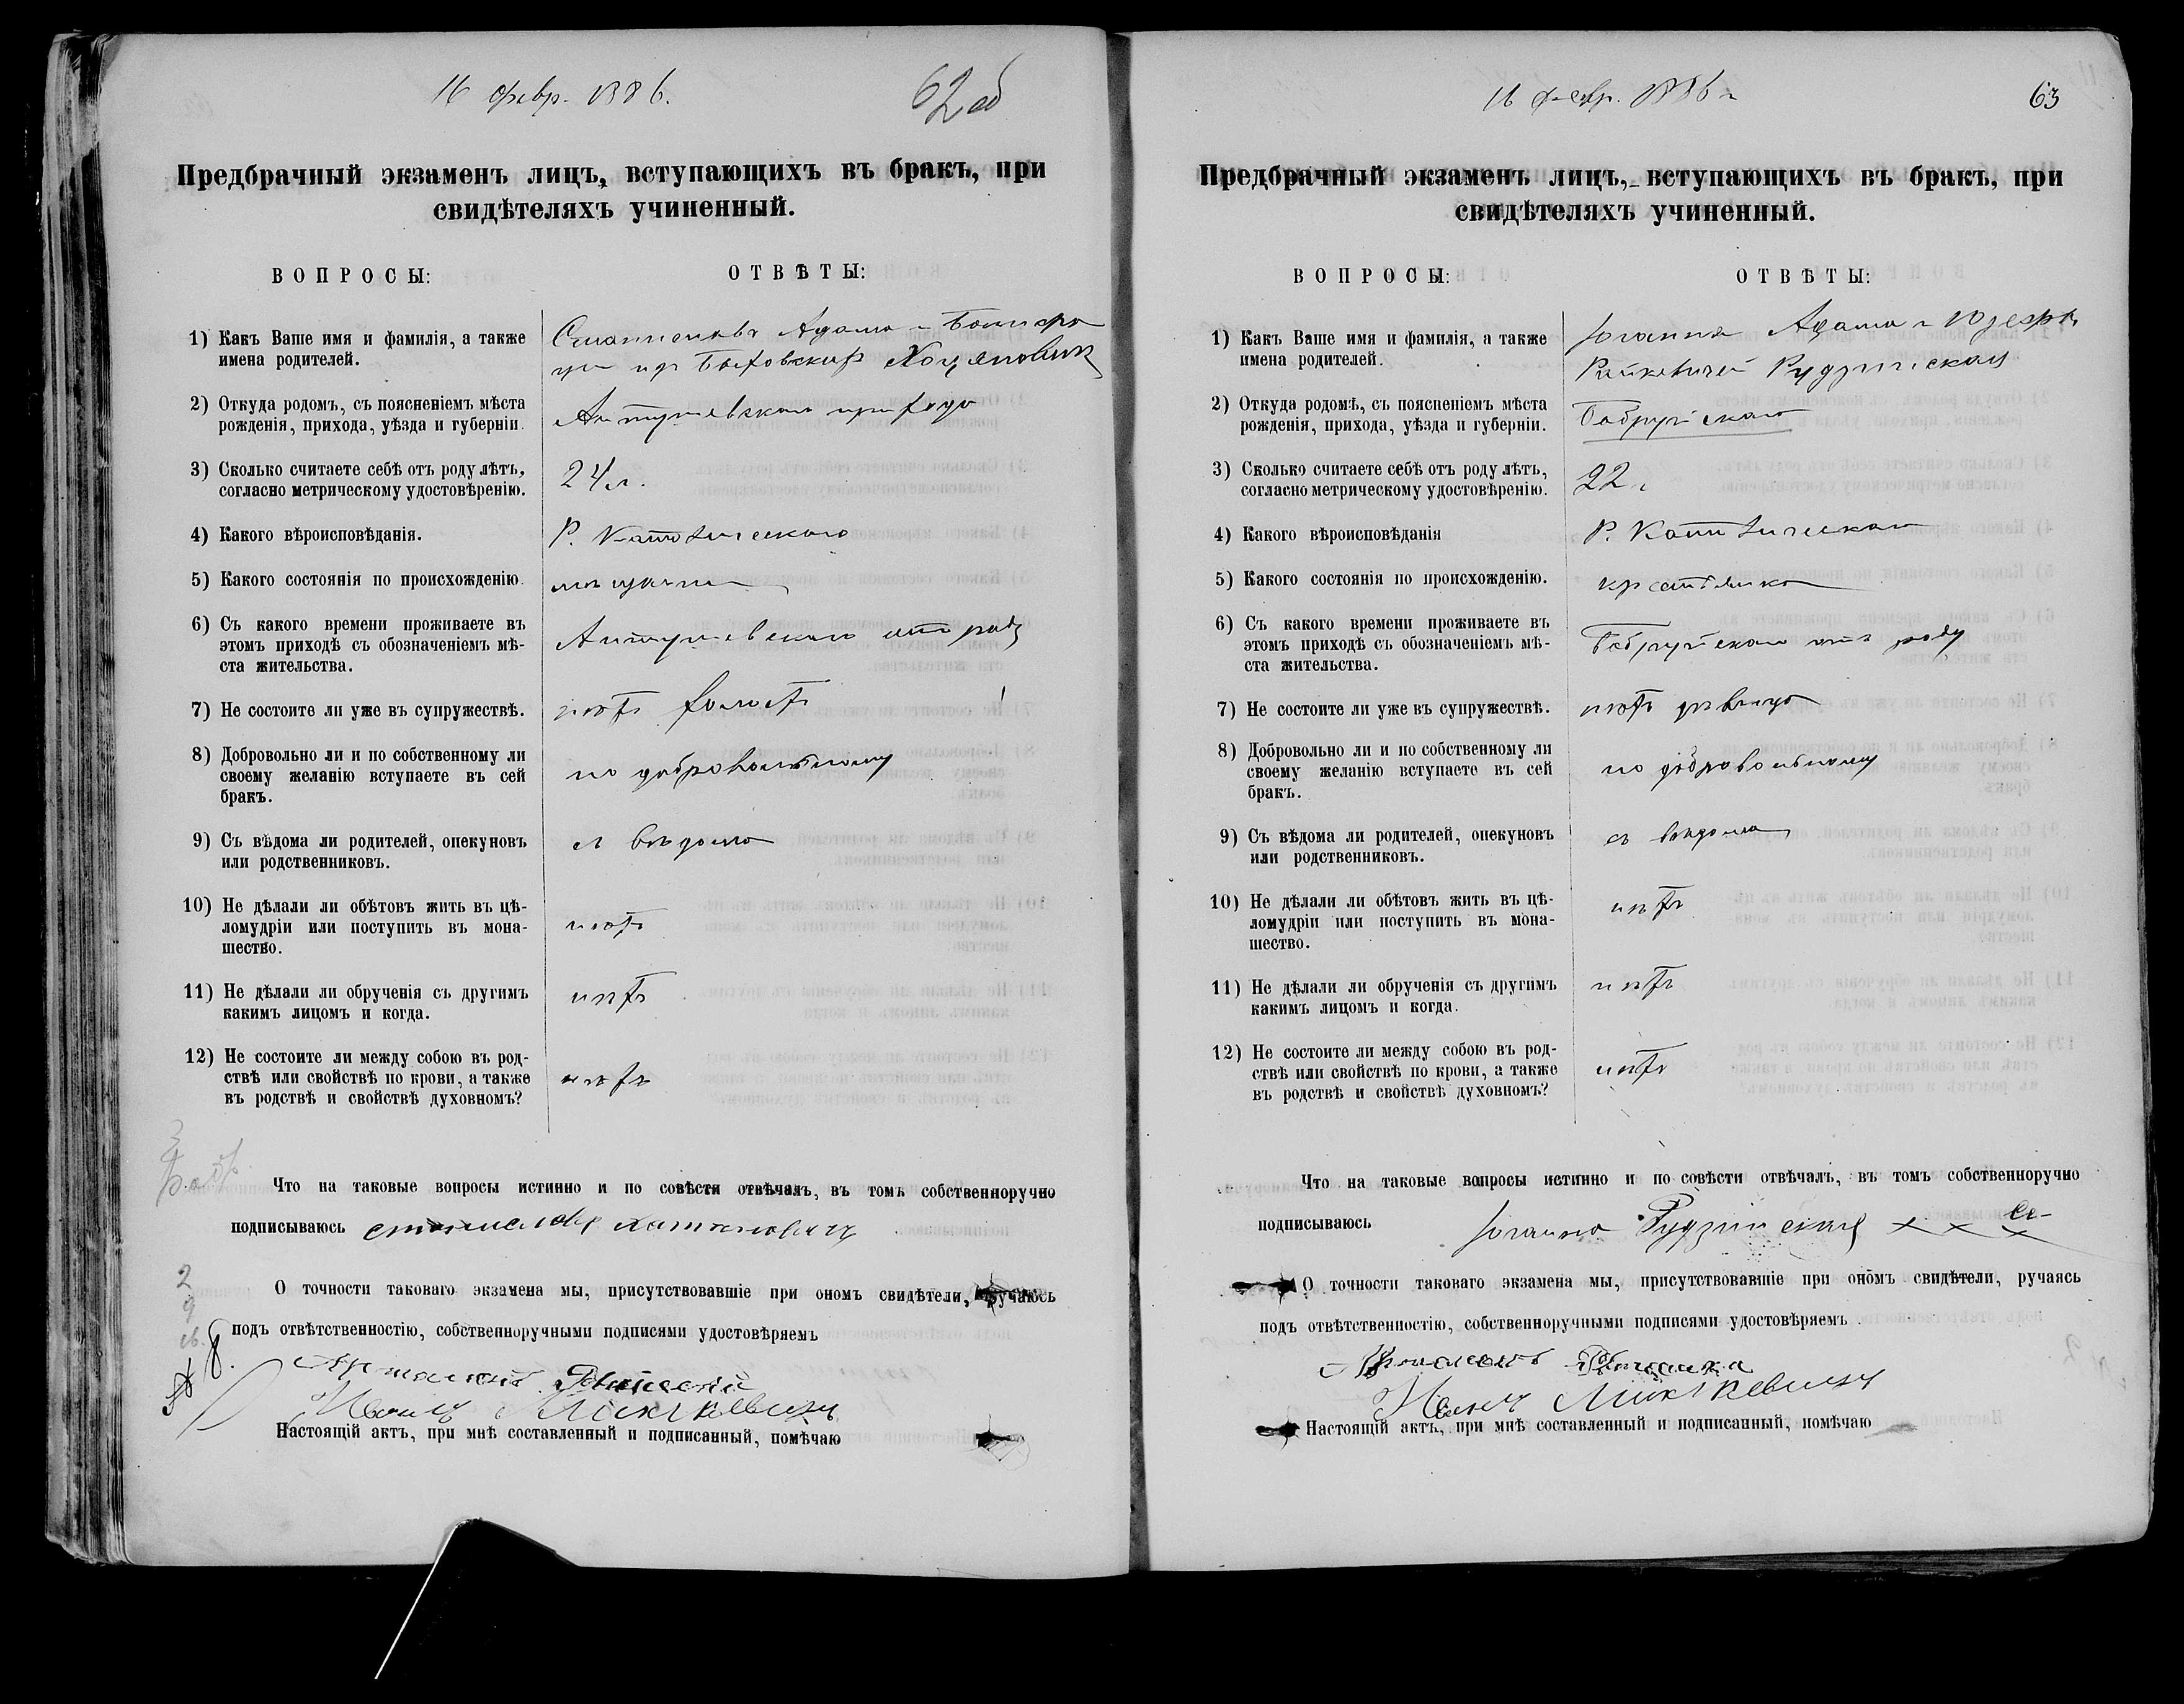 16 февр. 1886.
62об
Предбрачный экзаменъ лицъ, вступающихъ въ бракъ, при
свидѣтеляхъ учиненный.
ВОПРОСЫ:
ОТВѢТЫ:
1) Какъ Ваше имя и фамилія, а также
имена родителей.
Станиславъ Адама и Бонифа
2) Откуда родомъ, съ поясненіемъ мѣста
рожденія, прихода, уѣзда и губерніи.
прихода
3) Сколько считаете себѣ отъ роду лѣтъ,
согласно метрическому удостовѣренію.
24 л.
4) Какого вѣроисповѣданія.
Р. Католическаго
5) Какого состоянія по происхожденію.
мѣщанин
6) Съ какого времени проживаете въ
этомъ приходѣ съ обозначеніемъ мѣ-
ста жительства.
7) Не состоите ли уже въ супружествѣ.
нѣтъ холостъ
8) Добровольно ли и по собственному ли
своему желанію вступаете въ сей
бракъ.
по добровольному
9) Съ вѣдома ли родителей, опекуновъ
или родственниковъ.
съ вѣдома
10) Не дѣлали ли обѣтовъ жить въ цѣ-
ломудріи или поступить въ мона-
шество.
нѣтъ
11) Не дѣлали ли обрученія съ другимъ
какимъ лицомъ и когда.
нѣтъ
12) Не состоите ли между собою въ род-
ствѣ или свойствѣ по крови, а также
въ родствѣ и свойствѣ духовномъ?
нѣтъ
Что на таковые вопросы истинно и по совѣсти отвѣчалъ, въ томъ собственноручно
подписываюсь
О точности таковаго экзамена мы, присутствовавшіе при ономъ свидѣтели, ручаюсь
подъ отвѣтственностію, собственноручными подписями удостовѣряемъ
Иванъ Мицкевичъ
Настоящій актъ, при мнѣ составленный и подписанный, помѣчаю
16 февр. 1886 г
63
Предбрачный экзаменъ лицъ, вступающихъ въ бракъ, при
свидѣтеляхъ учиненный.
ВОПРОСЫ:
ОТВѢТЫ:
1) Какъ Ваше имя и фамилія, а также
имена родителей.
Іоганна Адама и Юзефы
Рудзинская
2) Откуда родомъ, съ поясненіемъ мѣста
рожденія, прихода, уѣзда и губерніи.
Бобруйскаго
3) Сколько считаете себѣ отъ роду лѣтъ,
согласно метрическому удостовѣренію.
22 л
4) Какого вѣроисповѣданія
Р. Католическаго
5) Какого состоянія по происхожденію.
крестьянка
6) Съ какого времени проживаете въ
этомъ приходѣ съ обозначеніемъ мѣ-
ста жительства.
Бобруйскаго отъ роду
7) Не состоите ли уже въ супружествѣ.
нѣтъ дѣвица
8) Добровольно ли и по собственному ли
своему желанію вступаете въ сей
бракъ.
по добровольному
9) Съ вѣдома ли родителей, опекуновъ
или родственниковъ.
съ вѣдома
10) Не дѣлали ли обѣтовъ жить въ цѣ-
ломудріи или поступить въ мона-
шество.
нѣтъ
11) Не дѣлали ли обрученія съ другимъ
какимъ лицомъ и когда.
нѣтъ
12) Не состоите ли между собою въ род-
ствѣ или свойствѣ по крови, а также
въ родствѣ и свойствѣ духовномъ?
нѣтъ
Что на таковые вопросы истинно и по совѣсти отвѣчалъ, въ томъ собственноручно
подписываюсь Іоганна Рудзинская х х х
О точности таковаго экзамена мы, присутствовавшіе при ономъ свидѣтели, ручаясь
подъ отвѣтственностію, собственноручными подписями удостовѣряемъ
Иванъ Мицкевичъ
Настоящій актъ, при мнѣ составленный и подписанный, помѣчаю